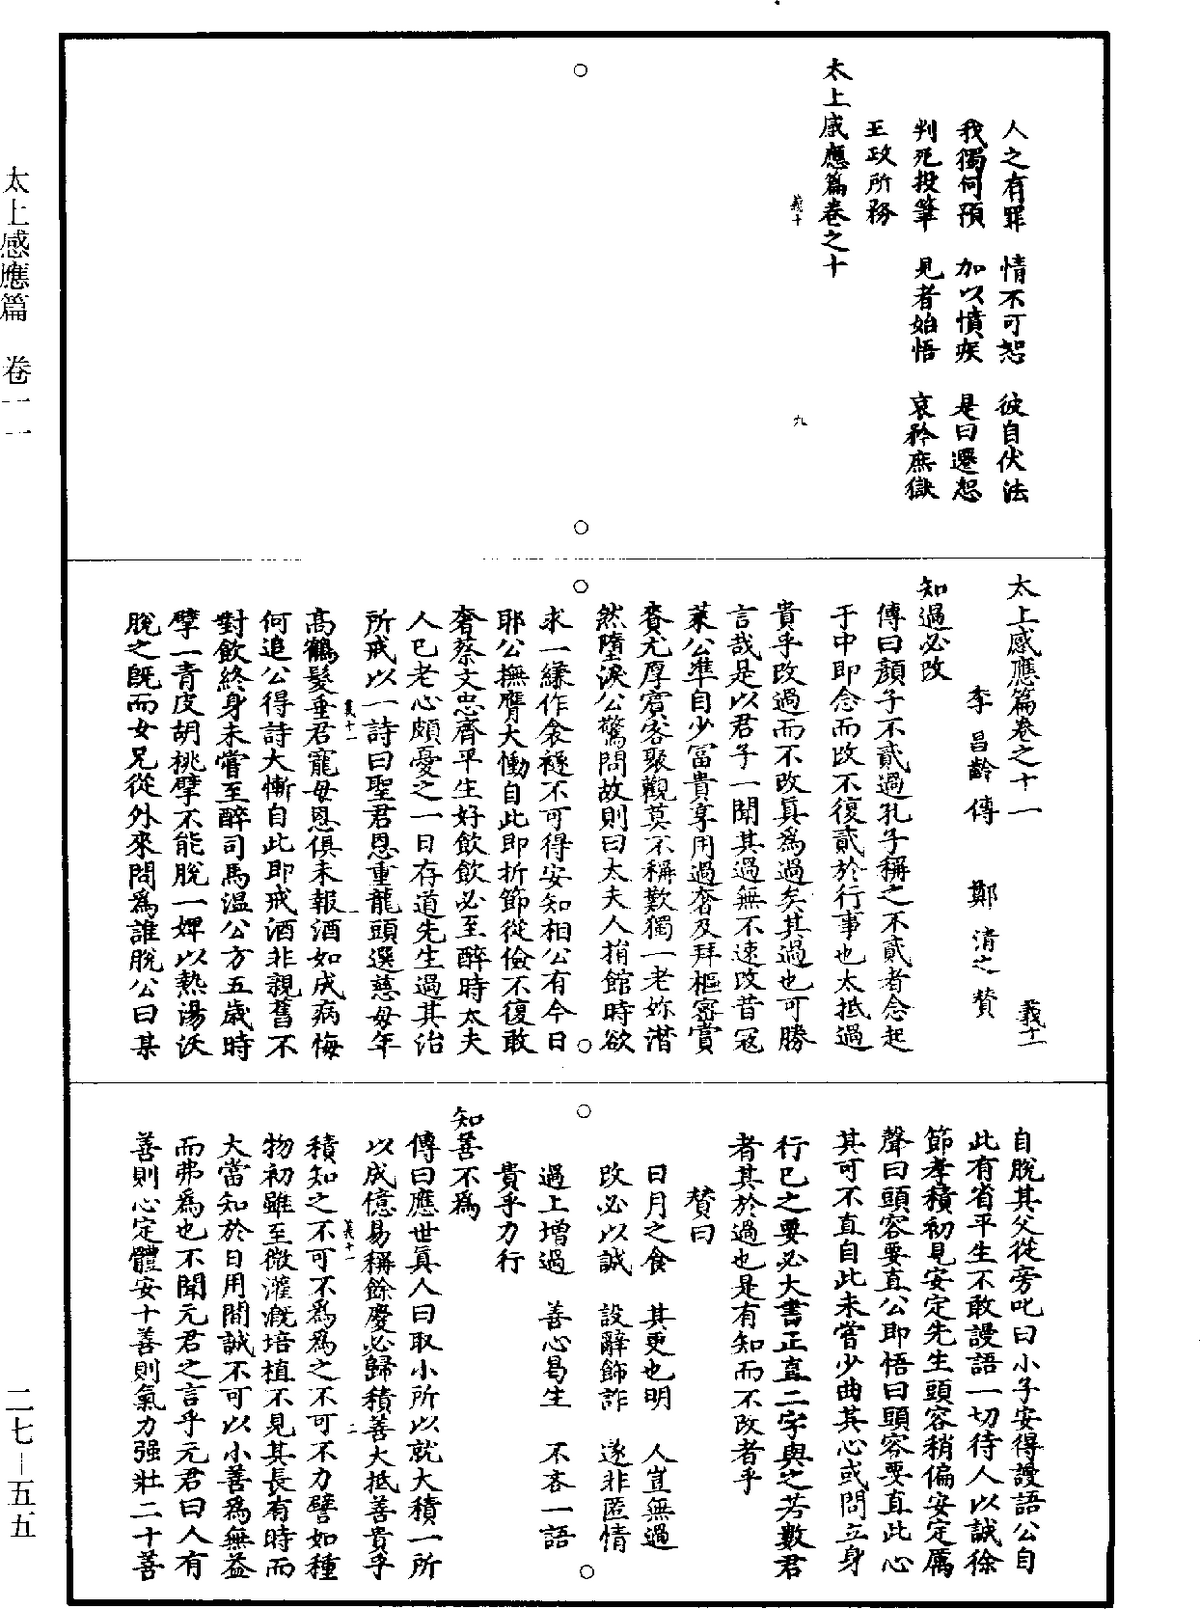 人之有罪　情不可恕　彼自伏法
我獨何預　加以憤疾　是曰遷怒
判死投筆　見者始悟　哀矜庶獄
王政所務
太上感應篇卷之十
義十　九
太上感應篇卷之十一　義十一
李昌齡傳　鄭清之贊
知過必改
傳曰顏子不貳過孔子稱之不貳者念起
于中即念而改不復貳於行事也大抵過
貴乎改過而不改真為過矣其過也可勝
言哉是以君子一聞其過無不速改昔寇
萊公準自少冨貴享用過奢及拜樞密賞
賚尤厚賓客聚觀莫不稱歎獨一老妳潸
然墮淚公驚問故則曰太夫人捐館時欲
求一縑作衾襚不可得安知相公有今日
耶公撫膺大慟自此即折節從儉不復敢
奢蔡文忠齊平生好飲飲必至醉時太夫
人已老心頗憂之一日存道先生過其治
所戒以一詩曰聖君恩重龍頭選慈母年
義十一　一
高鶴髮垂君寵母恩俱未報酒如成病悔
何追公得詩大慚自此即戒酒非親舊不
對飲終身未嘗至醉司馬温公方五歲時
擘一青皮胡桃擘不能脫一婢以熱湯沃
脫之既而女兄從外來問為誰脫公曰某
自脫其父從旁叱曰小子安得謾語公自
此有省平生不敢謾語一切待人以誠徐
節孝積初見安定先生頭容稍偏安定厲
聲曰頭容要直公即悟曰頭容要直此心
其可不直自此未嘗少曲其心或問立身
行己之要必大書正直二字與之若數君
者其於過也是有知而不改者乎
贊曰
日月之食　其更也明　人豈無過
改必以誠　設辭飾詐　遂非匿情
過上增過　善心曷生　不吝一語
貴乎力行
知善不為
傳曰應世真人曰取小所以就大積一所
以成億易稱餘慶必歸積善大抵善貴乎
義十一　二
積知之不可不為為之不可不力譬如種
物初雖至微灌溉培植不見其長有時而
大當知於日用間誠不可以小善為無益
而弗為也不聞元君之言乎元君曰人有
善則心定體安十善則氣力强壯二十善
太上感應篇　卷一一
二七—五五